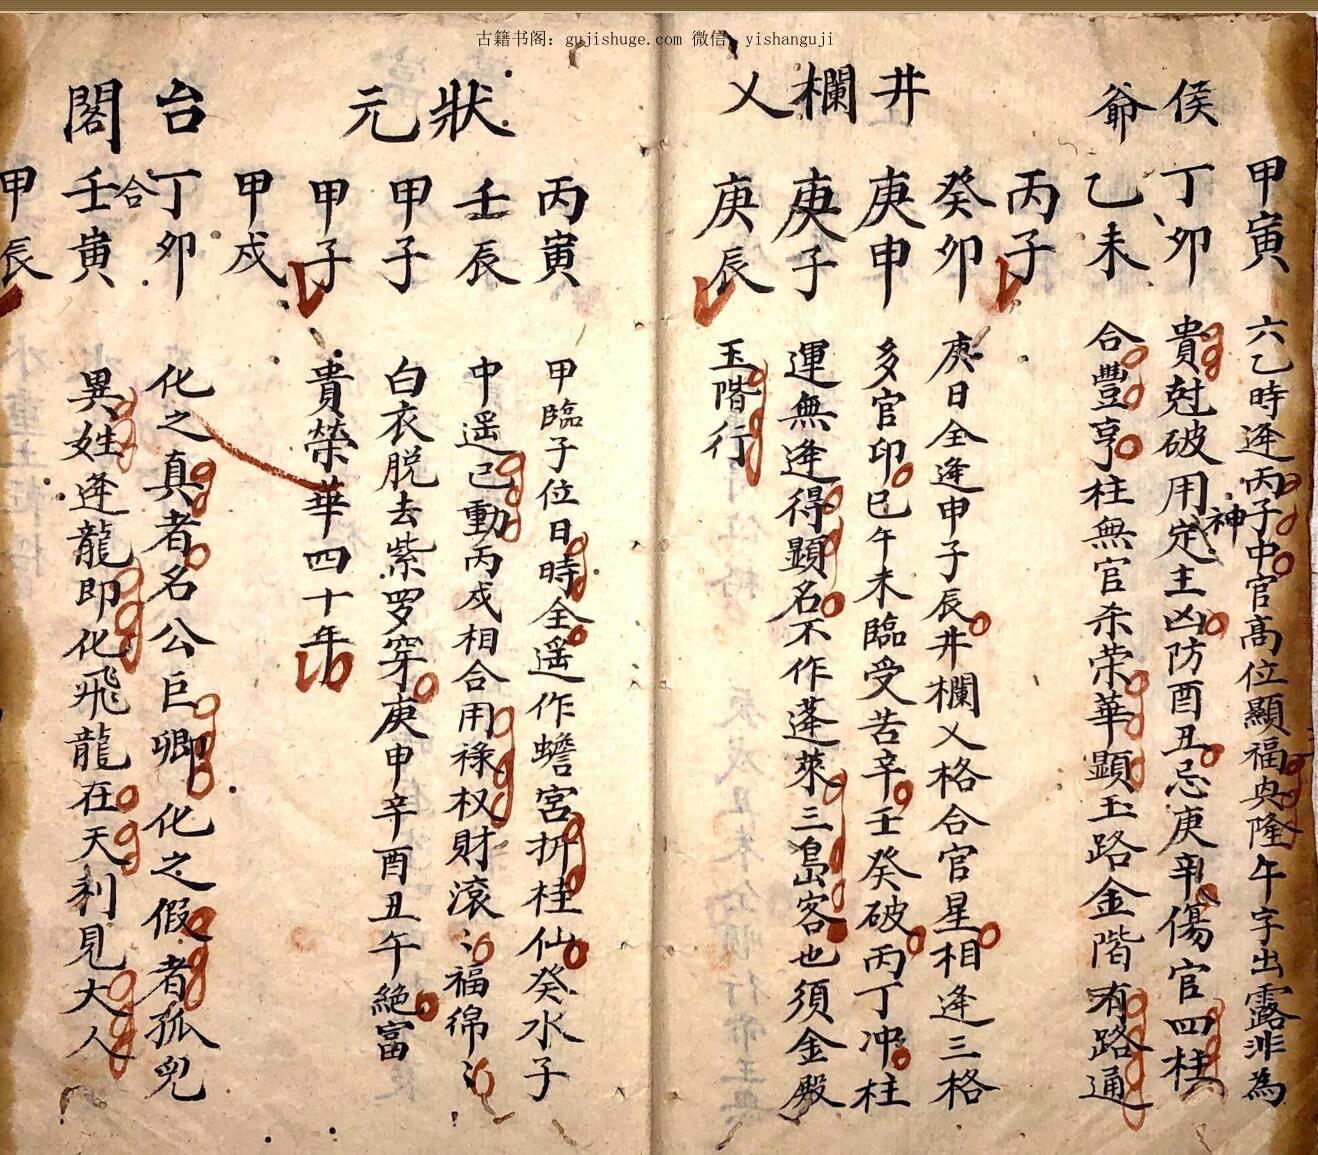 古籍书阁：gujishuge.com 微信：yishanguji
侯爺
井欄乂
狀元
台閣
甲寅 六乙時逢丙子中官高位顯福興隆午字出露非為
丁卯 貴尅破用神定主凶防酉丑忌庚辛傷官四柱
乙未 合豐亨柱無官杀荣華顯玉路金階有路通
丙子
癸卯 庚日全逢申子辰井欄乂格合官星相逢三格
庚申 多官印巳午未臨受苦辛壬癸破丙丁冲柱
庚子 運無逢得顯名不作蓬萊三島客也須金殿
庚辰 玉階行
丙寅 甲臨子位日時全遥作蟾宮折桂仙癸水子
壬辰 中遥巳動丙戍相合用祿权財滚〻福綿〻
甲子 白衣脱去紫罗穿庚申辛酉丑午絕富
甲子 貴榮華四十年
甲戍
丁卯 合化之真者名公巨卿化之假者孤兒
壬寅 異姓逢龍即化飛龍在天利見大人
甲辰